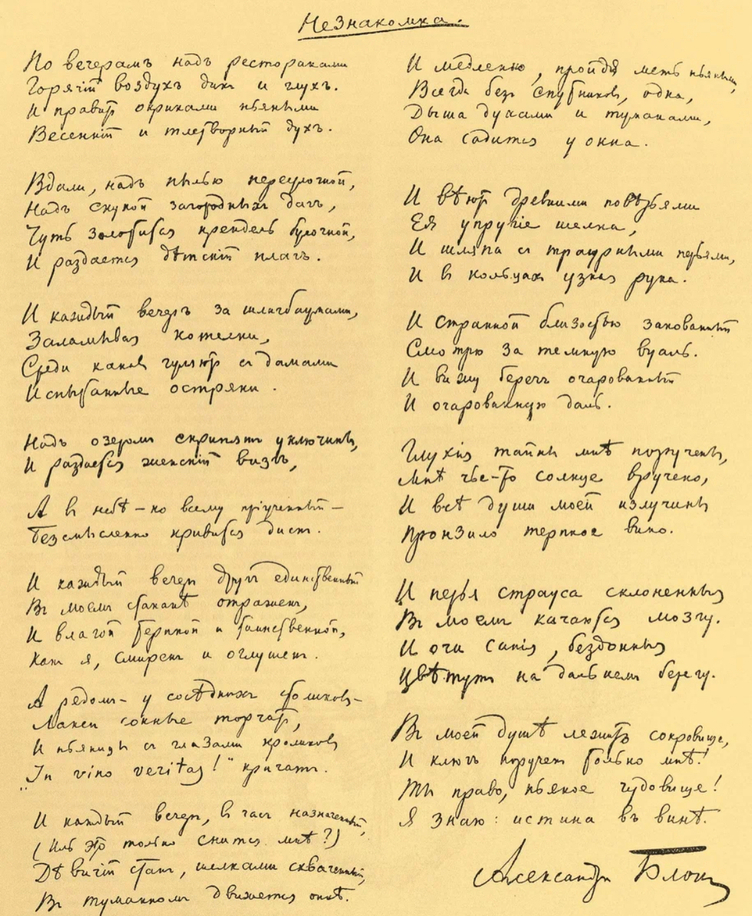 Незнакомка.
По вечерамъ надъ ресторанами
Горячій воздухъ дикъ и глухъ.
И правитъ окриками пьяными
Весенній и тлетворный духъ.
Вдали, надъ пылью переулочной,
Надъ скукой загородныхъ дачъ,
Чуть золотится крендель булочной,
И раздается дѣтскій плачъ.
И каждый вечеръ за шлагбаумами,
Заламывая котелки,
Среди канавъ гуляютъ съ дамами
Испытанные остряки.
Надъ озеромъ скрипятъ уключины,
И раздается женскій визгъ,
А въ небѣ – ко всему пріученный –
Безсмысленно кривится дискъ.
И каждый вечеръ другъ единственный
Въ моемъ стаканѣ отраженъ,
И влагой терпкой и таинственной,
Какъ я, смиренъ и оглушенъ.
А рядомъ – у сосѣднихъ столиковъ –
Лакеи сонные торчатъ,
И пьяницы съ глазами кроликовъ
„In vino veritas!“ кричатъ.
И каждый вечеръ, въ часъ назначенный,
(Иль это только снится мнѣ?)
Дѣвичій станъ, шелками схваченный,
Въ туманномъ движется окнѣ.
И медленно, пройдя межъ пьяными,
Всегда безъ спутниковъ, одна,
Дыша духами и туманами,
Она садится у окна.
И вѣютъ древними повѣрьями
Ея упругіе шелка,
И шляпа съ траурными перьями,
И въ кольцахъ узкая рука.
И странной близостью закованный
Смотрю за темную вуаль.
И вижу берегъ очарованный
И очарованную даль.
Глухія тайны мнѣ поручены,
Мнѣ чье-то солнце вручено,
И всѣ души моей излучины
Пронзило терпкое вино.
И перья страуса склоненныя
Въ моемъ качаются мозгу.
И очи синія, бездонныя
Цвѣтутъ на дальнемъ берегу.
Въ моей душѣ лежитъ сокровище,
И ключъ порученъ только мнѣ!
Ты право, пьяное чудовище!
Я знаю: истина въ винѣ.
Александръ Блокъ